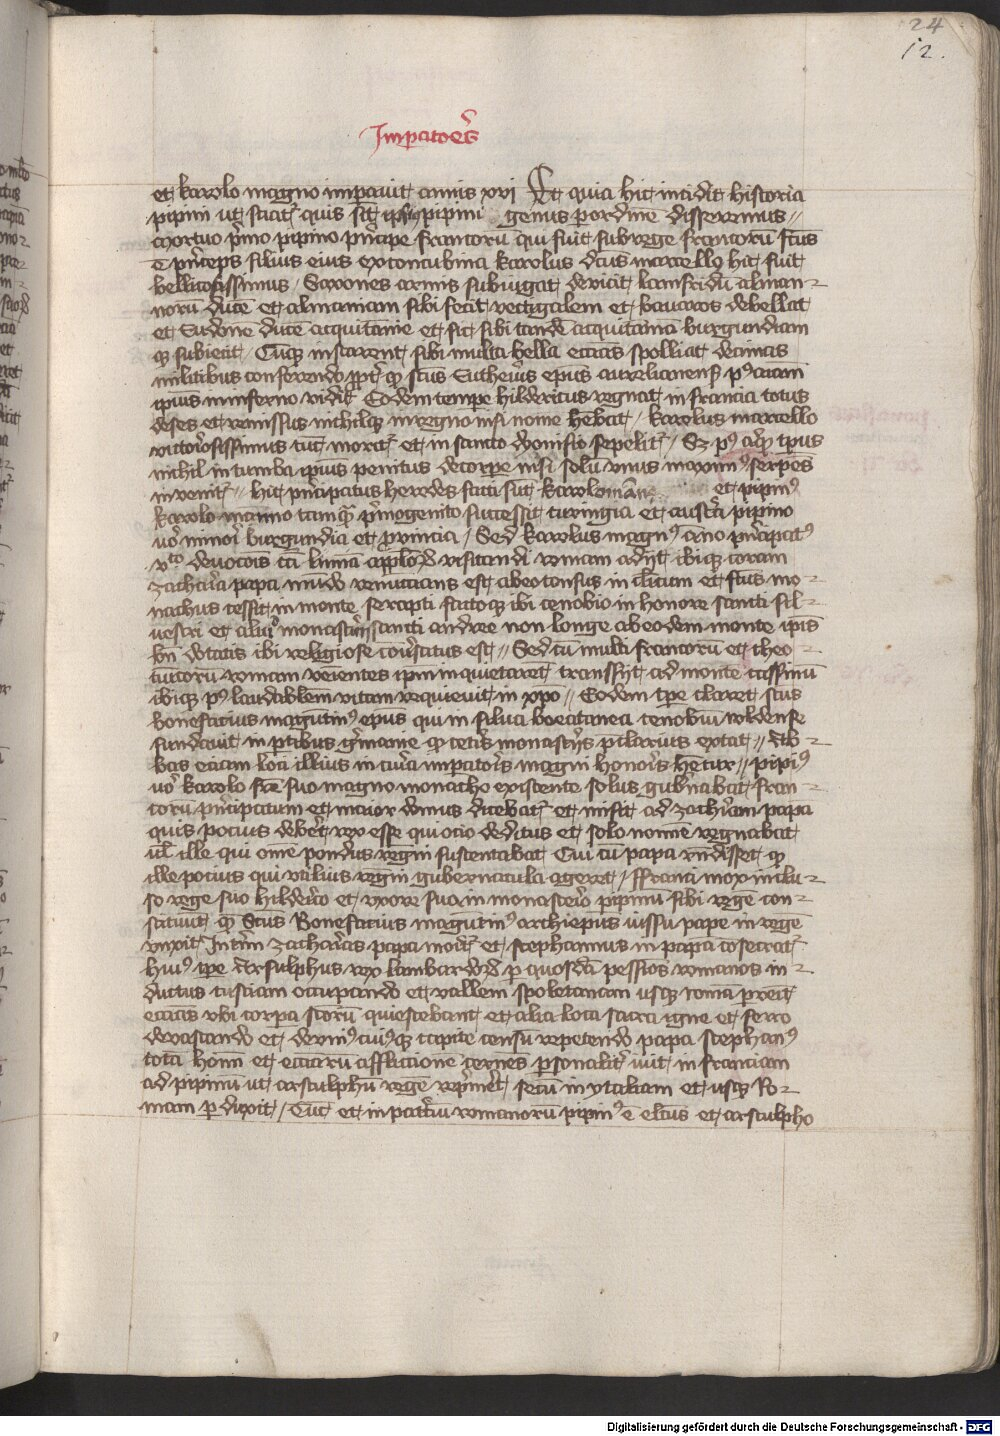 24
12.
Imp̄atoēs
et karolo magno imp̄auit annis xvi Et quia hic incidit historia
pipini ut sciat͛ quis fu͛it ipsius pipini genus p ordinē disseremus //
Mortuo p͛mo pipino p͛ncipe francorū qui fuit sub rege francorū fc̄us
ē p͛nceps filius eius ex concubina karolus dc̄us marcello hic fuit
bellicosissimus / Saxones armis subiugat deuicit lamfridū alman-
norū ducē et almaniam sibi fecit vectigalem et bauaros debellat
et Eudonē ducē aquitanie et sic sibi tandē aquitaniā burgundiam
q͛ subiecit / Cūq͛ instarent sibi multa bella eccīas spoliat decimas
militibus conferendo ppt͛ qd̄ sc̄us Eucheri͛us ep̄us aurelianens͛ p͛ animā
ipius in inferno vidit Eodem tempe hildericus regnat in francia totus
deses et remissus nichilq͛ in regno nisi nomē hēbat / karolus marcello
victoriosissimus tūc morit͛ et in sancto dyonisio sepelit͛ / Sz p͛ corp͛ ipius
nichil in tumba ipius penitus de corpe nisi solū vnus maxim͛ serpēs
inuenit͛ // hic p͛ncipatus heredes facti sūt karolomān͛ et pipin͛
karolo manno tamq͛ p͛mogenito successit turingia et austria pipino
uo͛ minori burgundia et puincia / Sed karolus magn͛ anno p͛ncipat͛
vto deuocōis cā limina ap̄lo℞ visitandi romam adijt ibiq͛ coram
zacharia papa mūdo renuncians est ab eo tonsus in clicum et fc̄us mo-
nachus cessit in monte serapti factoq͛ ibi cenobio in honore sancti sil-
uestri et aliud monast͛iū sancti andree non longe ab eodem monte ip̄is
bn̄ dotatis ibi religiose conu͛satus est // Sed cū multi francorū et theo-
tunicorū romam veientes ip̄m inquietarēt transijt ad montē cassinū
ibiq͛ p͛ laudabilem vitam requieuit in xpo // Eodem tp̄e claret sc̄us
bonefacius magutin͛ ep̄us qui in silua boecanea cenobiū voldense
fundauit in ptibus g͛manie qd̄ cet͛is monast͛ijs pclarius extat // Ab-
bas eciam loci illius in curia imp̄atoris magni honoris hētur // pipin͛
uo͛ karolo fr̄e suo magno monacho existente solus gub͛nabat fran-
corū p͛ncipatum et maior domus dicebat͛ et misit ad zachariam papā
quis pocius deberet rex esse qui ocio deditus et solo nomīe regnabat
ul̄ ille qui om̄e pondus regni sustentabat Cui cū papa rn̄disset qd̄
ille pocius qui vtilius regni gubernacula ageret / ffranci mox inclu-
so rege suo hilderico et vxore sua in monasterio pipinū sibi regē con-
stituūt q͛ Scus Bonefacius magutin͛ archiep̄us iussu pape in regē
vnxit / Int͛im zacharias papa morit͛ et stephannus in papā cōsecrat͛
hui͛ tp̄e Arsulphus rex lambardo℞ p quosdā pessīos romanos in-
ductus tusciam occupando et vallem spoletanam usq͛ romā p͛reit
eccīas vbi corpa sc̄orū quiescebant et alia loca sacra igne et ferro
deuastando et de vni͛ cui͛q͛ capite censū repetendo papa stephan͛
tota hom͛ et eccīarū afflictione cernēs psonalit͛ iuit in franciam
ad pipinū ut arsulphū regē rep͛mēt secū in ytaliam et usq͛ Ro-
mam p duxit / Cūc et in patriciū romanorū pipin͛ ē elc̄us et arsulpho
Digitalisierung gefördert durch die Deutsche Forschungsgemeinschaft - DFG